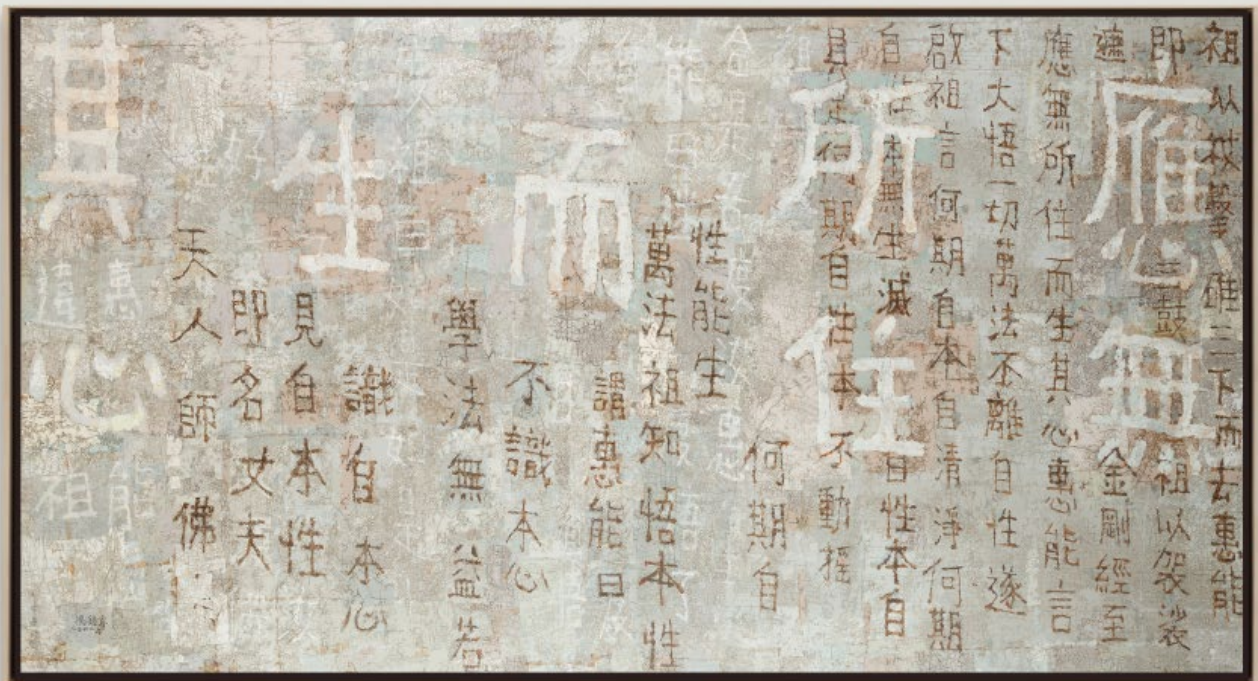 應無
所住
而
生
其心
祖以杖擊碓三下而去惠能
即三鼓祖以袈裟
金剛經至
應無所住而生其心惠能言
下大悟一切萬法不離自性遂
啟祖言何期自本自清淨何期
自性本無生滅自性本自
具足何期自性本不動搖
何期自
性能生
萬法祖知悟本性
謂惠能曰
不識本心
學法無益若
識自本心
見自本性
即名丈夫
天人師佛
惠
能
祖